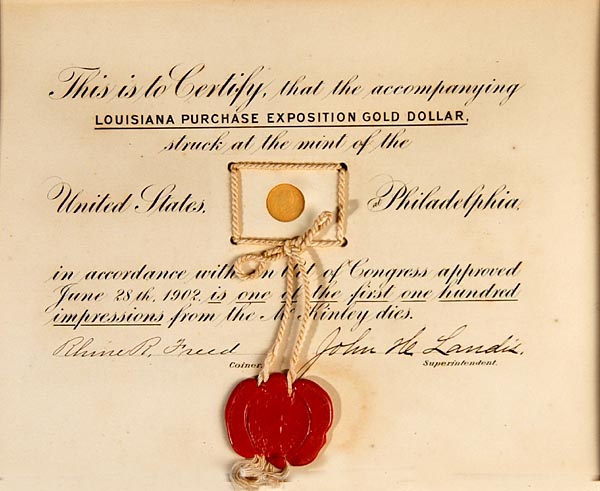 This is to Certify, that the accompanying
LOUISIANA PURCHASE EXPOSITION GOLD DOLLAR,
struck at the mint of the
United States, Philadelphia,
in accordance with an of Congress approved
June 28th, 1902, is one of the first one hundred
impressions from the McKinley dies.
Rhine R. Freed John H. Landis.
Coiner. Superintendent.